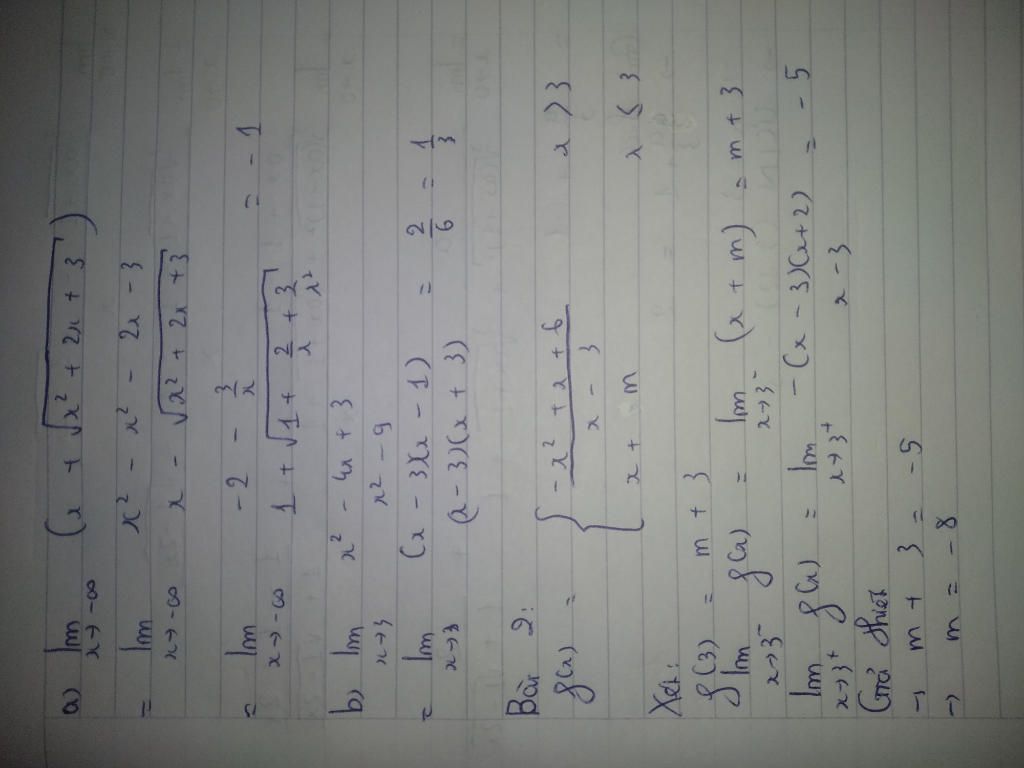 a) lim x→-∞ (x + √(x² + 2x + 3))
= lim x→-∞ (x² - x² - 2x - 3)/(x - √(x² + 2x + 3))
= lim x→-∞ (-2 - 3/x)/(1 + √(1 + 2/x + 3/x²)) = -1
b) lim x→3 (x² - 4x + 3)/(x² - 9)
= lim x→3 (x - 3)(x - 1)/(x - 3)(x + 3) = 2/6 = 1/3
Bài 2:
f(x) = { (-x² + x + 6)/(x - 3) x > 3
x + m x ≤ 3
Xét:
f(3) = m + 3
lim x→3⁻ f(x) = lim x→3⁻ (x + m) = m + 3
lim x→3⁺ f(x) = lim x→3⁺ -(x - 3)(x + 2)/(x - 3) = -5
Giả thiết
→ m + 3 = -5
→ m = -8